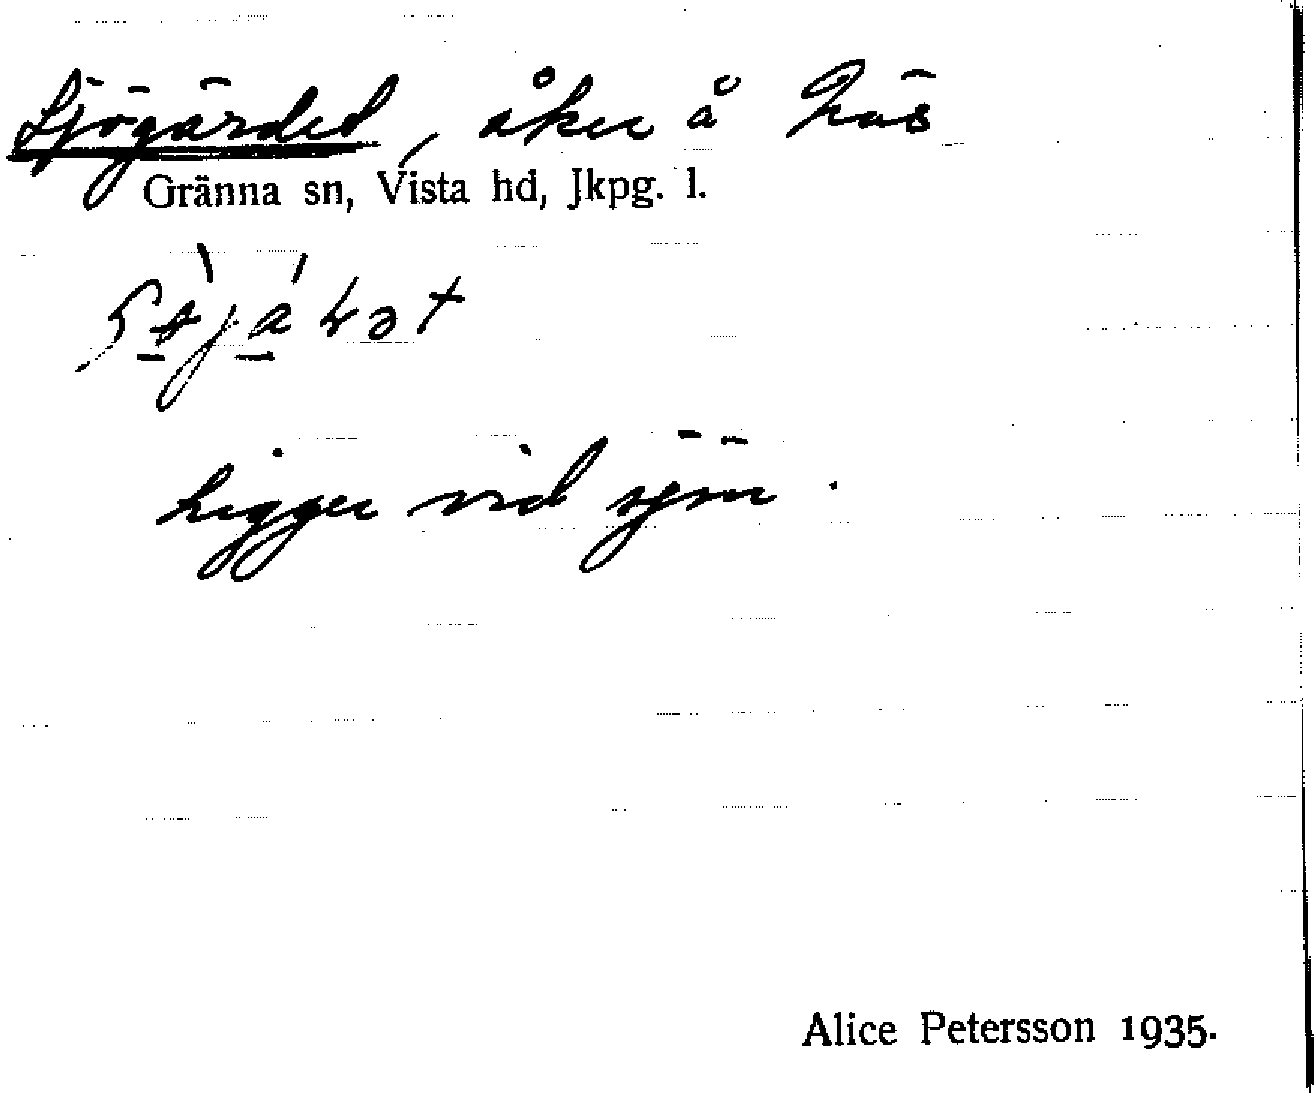 Sjögärdet, åker å Näs
Gränna sn, Vista hd, Jkpg. l.
Ligger vid sjön.
Alice Petersson 1935.